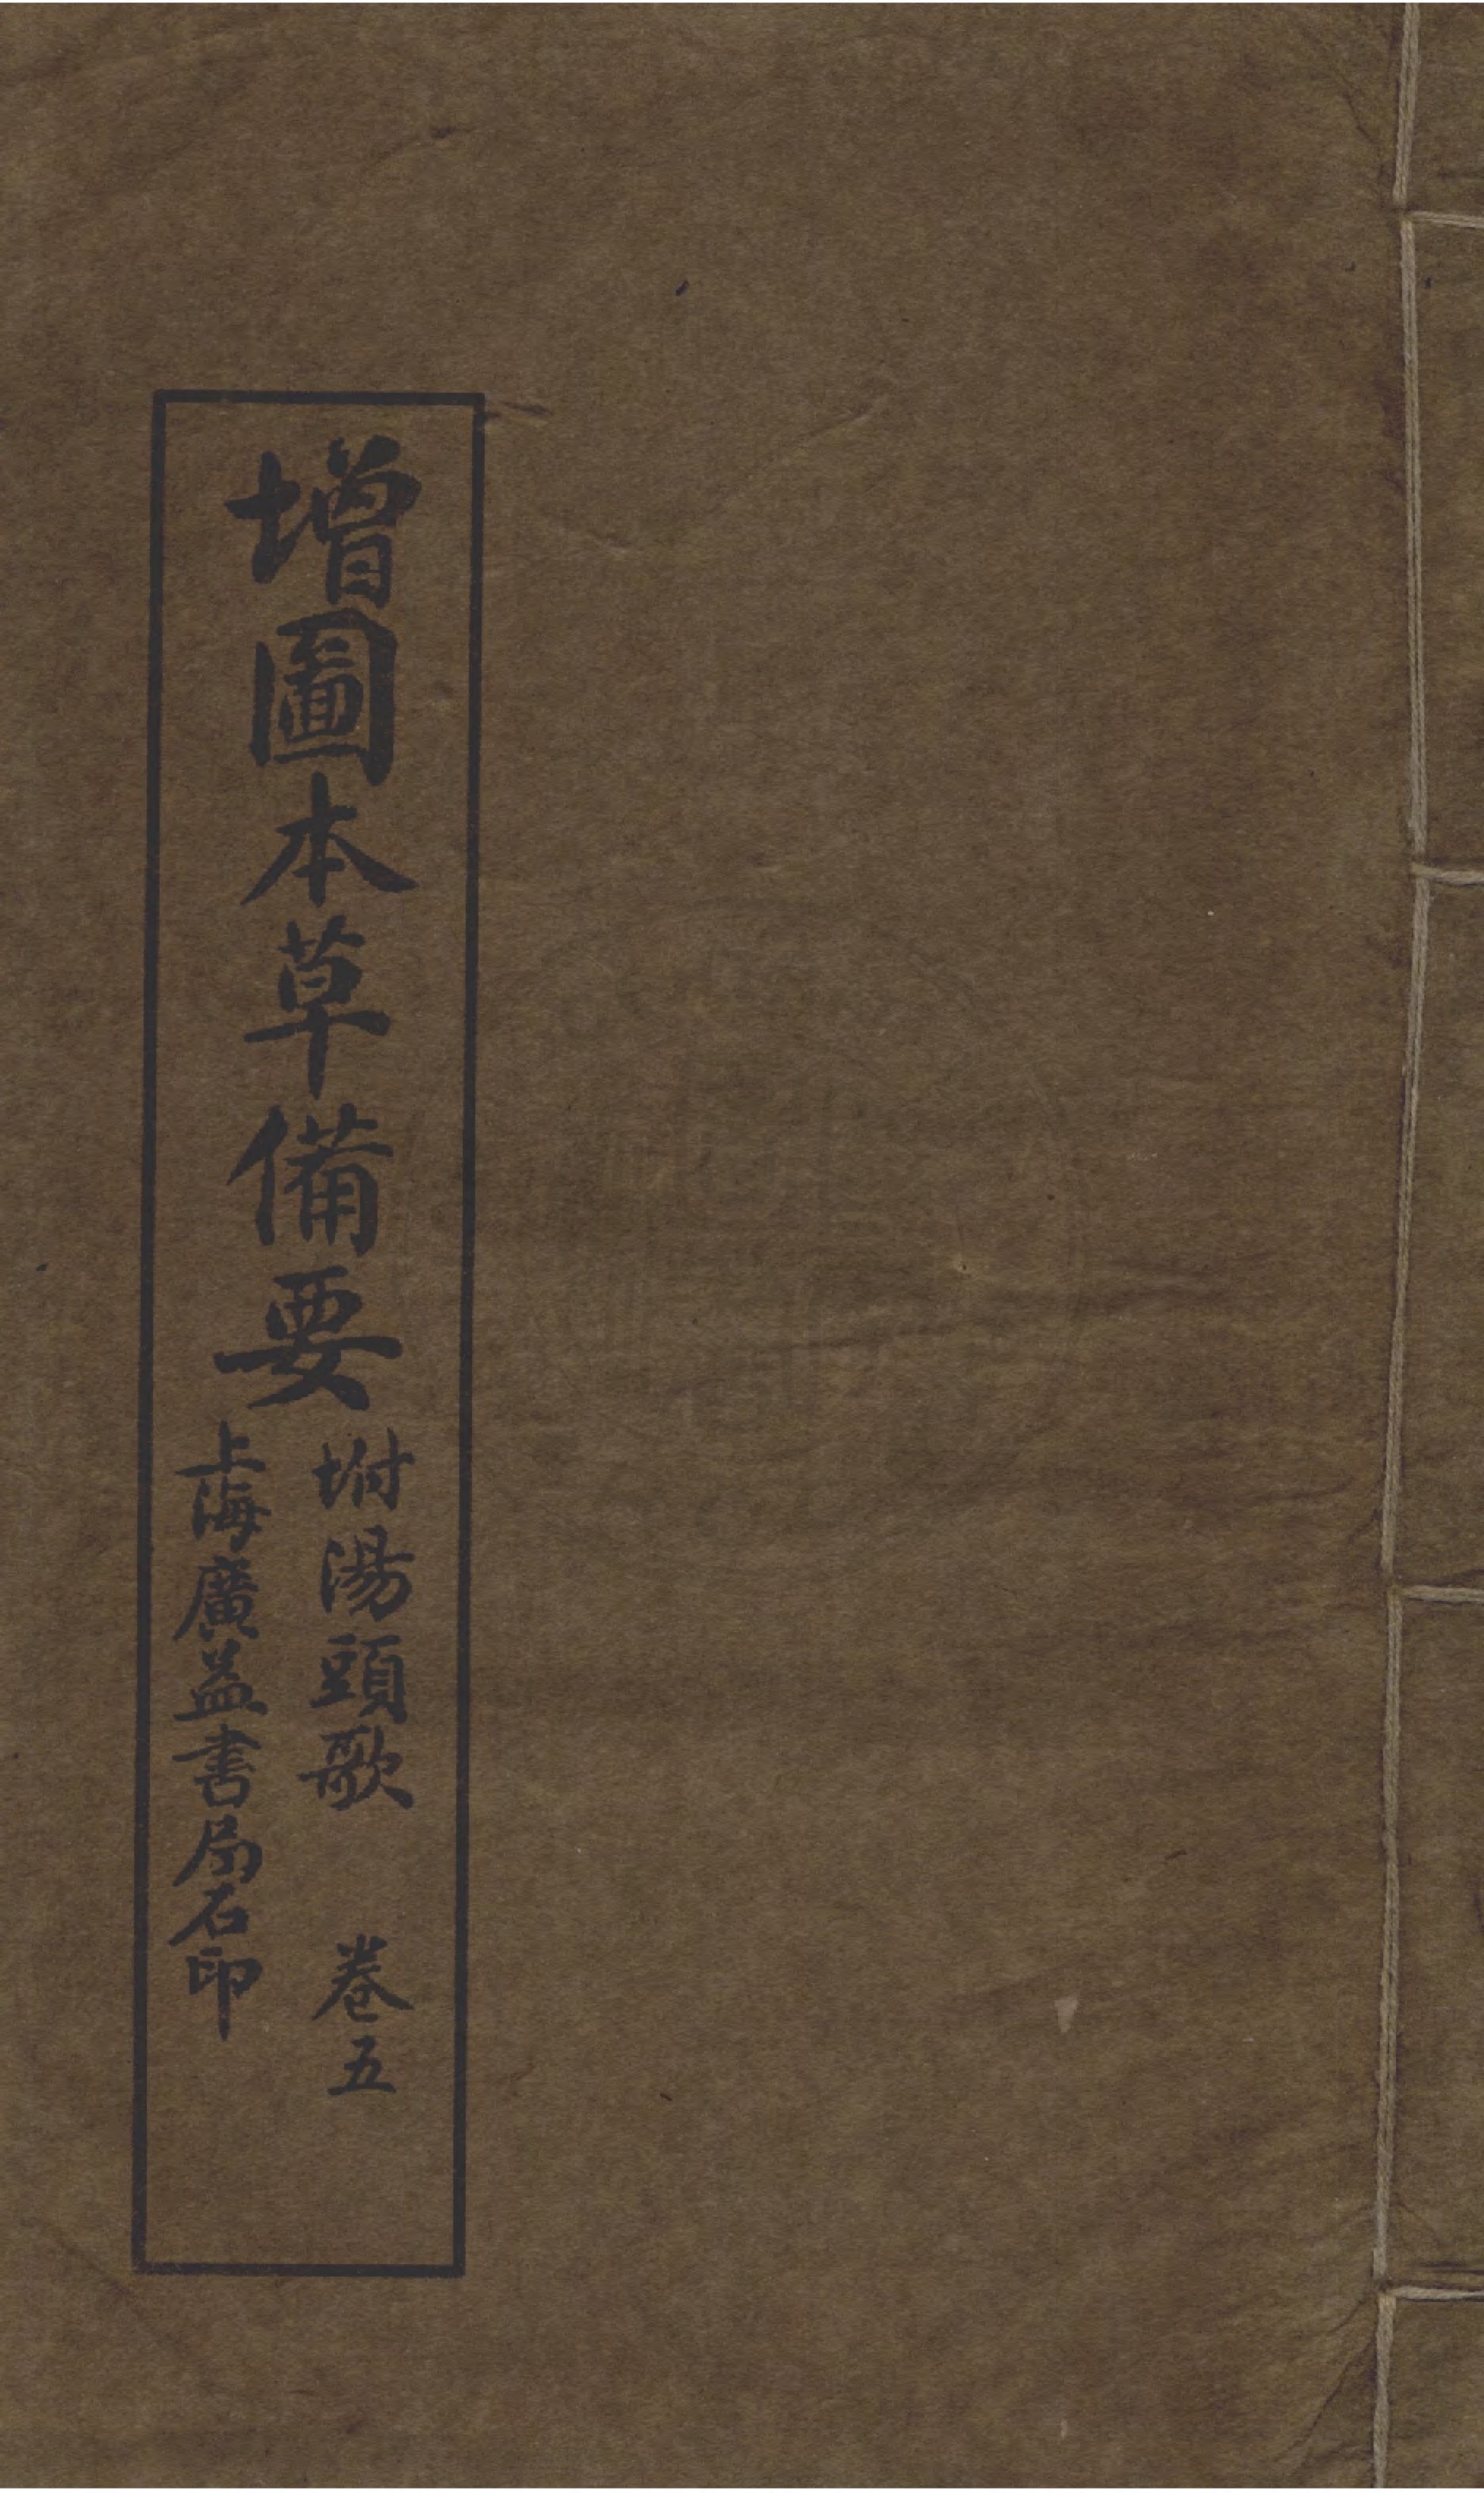 增圖本草備要
坿湯頭歌 卷五
上海廣益書局石印